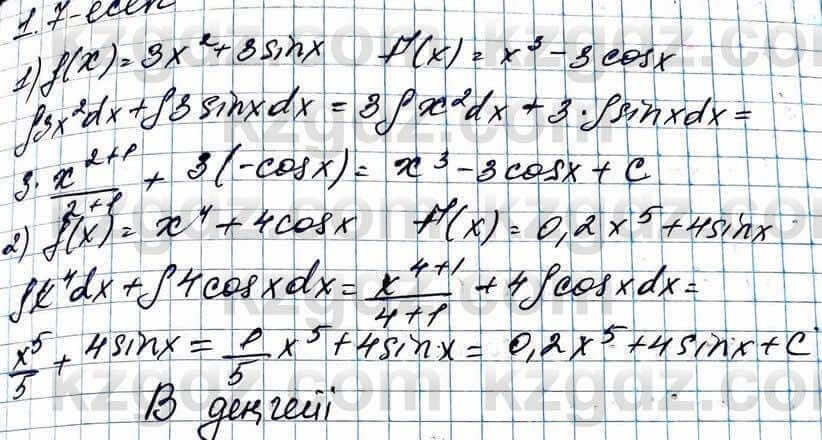 1.7-есеп
1) f(x) = 3x² + 3sinx F(x) = x³ - 3cosx
∫3x²dx + ∫3sinxdx = 3∫x²dx + 3·∫sinxdx =
3· x^(2+1)/(2+1) + 3(-cosx) = x³ - 3cosx + C
2) f(x) = x⁴ + 4cosx F(x) = 0,2x⁵ + 4sinx
∫x⁴dx + ∫4cosxdx = x^(4+1)/(4+1) + 4∫cosxdx =
x⁵/5 + 4sinx = 1/5 x⁵ + 4sinx = 0,2x⁵ + 4sinx + C
В деңгейі
kzgdz.com